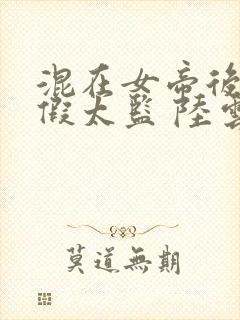 混在女帝後
假太監 陸雲
莫道無期